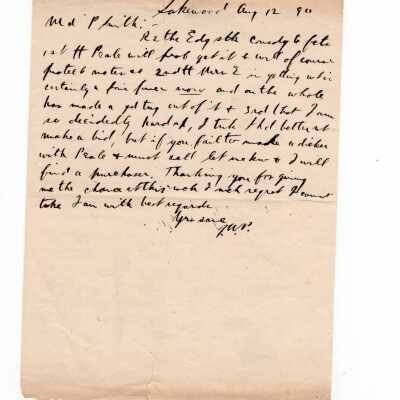 Lakewood Aug 12 90
My d' P Smith:
Re the Edg comedy
1st H Peale will prob get it & will of course
protect notes as 2nd H Mrs E is getting
certainly a fine now and on the whole
has made a out of it & 3rd that I am
so decidedly hard up, I think I had better not
make a bid, but if you fail to make a dicker
with Peale & must sell let me know & I will
find a purchaser. Thanking you for giving
me the chance I much regret I cannot
take I am with best regards
Yrs